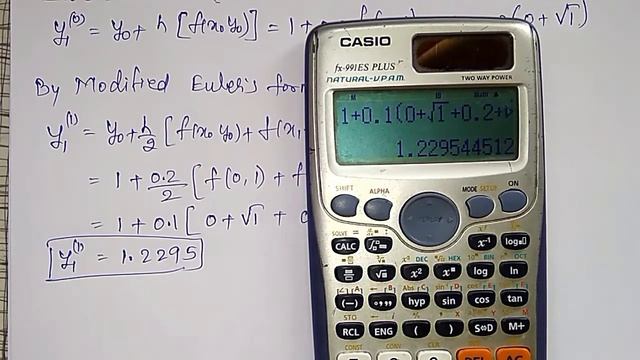 y₁⁽⁰⁾ = y₀ + h [f(x₀ y₀)] = 1 + (0 + √1)
By Modified Euler's
y₁⁽¹⁾ = y₀ + h/2 [f(x₀ y₀) + f(x₁
= 1 + 0.2/2 [f(0,1) + f
= 1 + 0.1 [0 + √1 +
y₁⁽¹⁾ = 1.2295
CASIO
fx-991ES PLUS
NATURAL-V.P.A.M.
TWO WAY POWER
1+0.1(0+√1+0.2+
1.229544512
SHIFT ALPHA MODE SETUP ON
SOLVE =
CALC x⁻¹ log
√ x² log ln
(−) hyp sin cos tan
STO
RCL ENG ( ) S⇔D M+
CONST CONV CLR
DEL AC